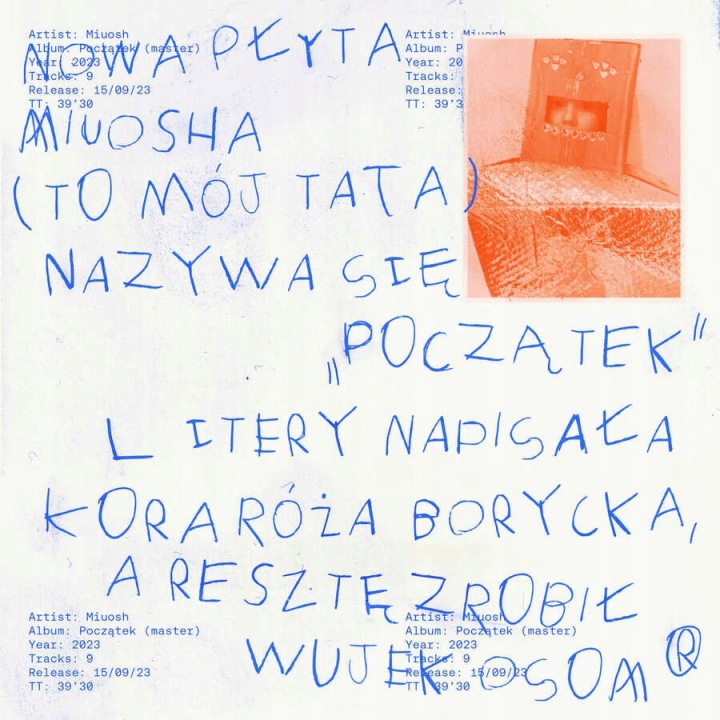 Artist: Miuosh
Album: Początek (master)
Year: 2023
Tracks: 9
Release: 15/09/23
TT: 39'30
Artist: Miuosh
Album: P
Year: 20
Tracks:
Release:
TT: 39'3
NOWA PŁYTA
MIUOSHA
(TO MÓJ TATA)
NAZYWA SIĘ
„POCZĄTEK"
LITERY NAPISAŁA
KORARÓŻA BORYCKA,
A RESZTĘ ZROBIŁ
WUJEK OSOM ®
Artist: Miuosh
Album: Początek (master)
Year: 2023
Tracks: 9
Release: 15/09/23
TT: 39'30
Artist: Miuosh
Album: Początek (master)
Year: 2023
Tracks: 9
Release: 15/09/23
TT: 39'30